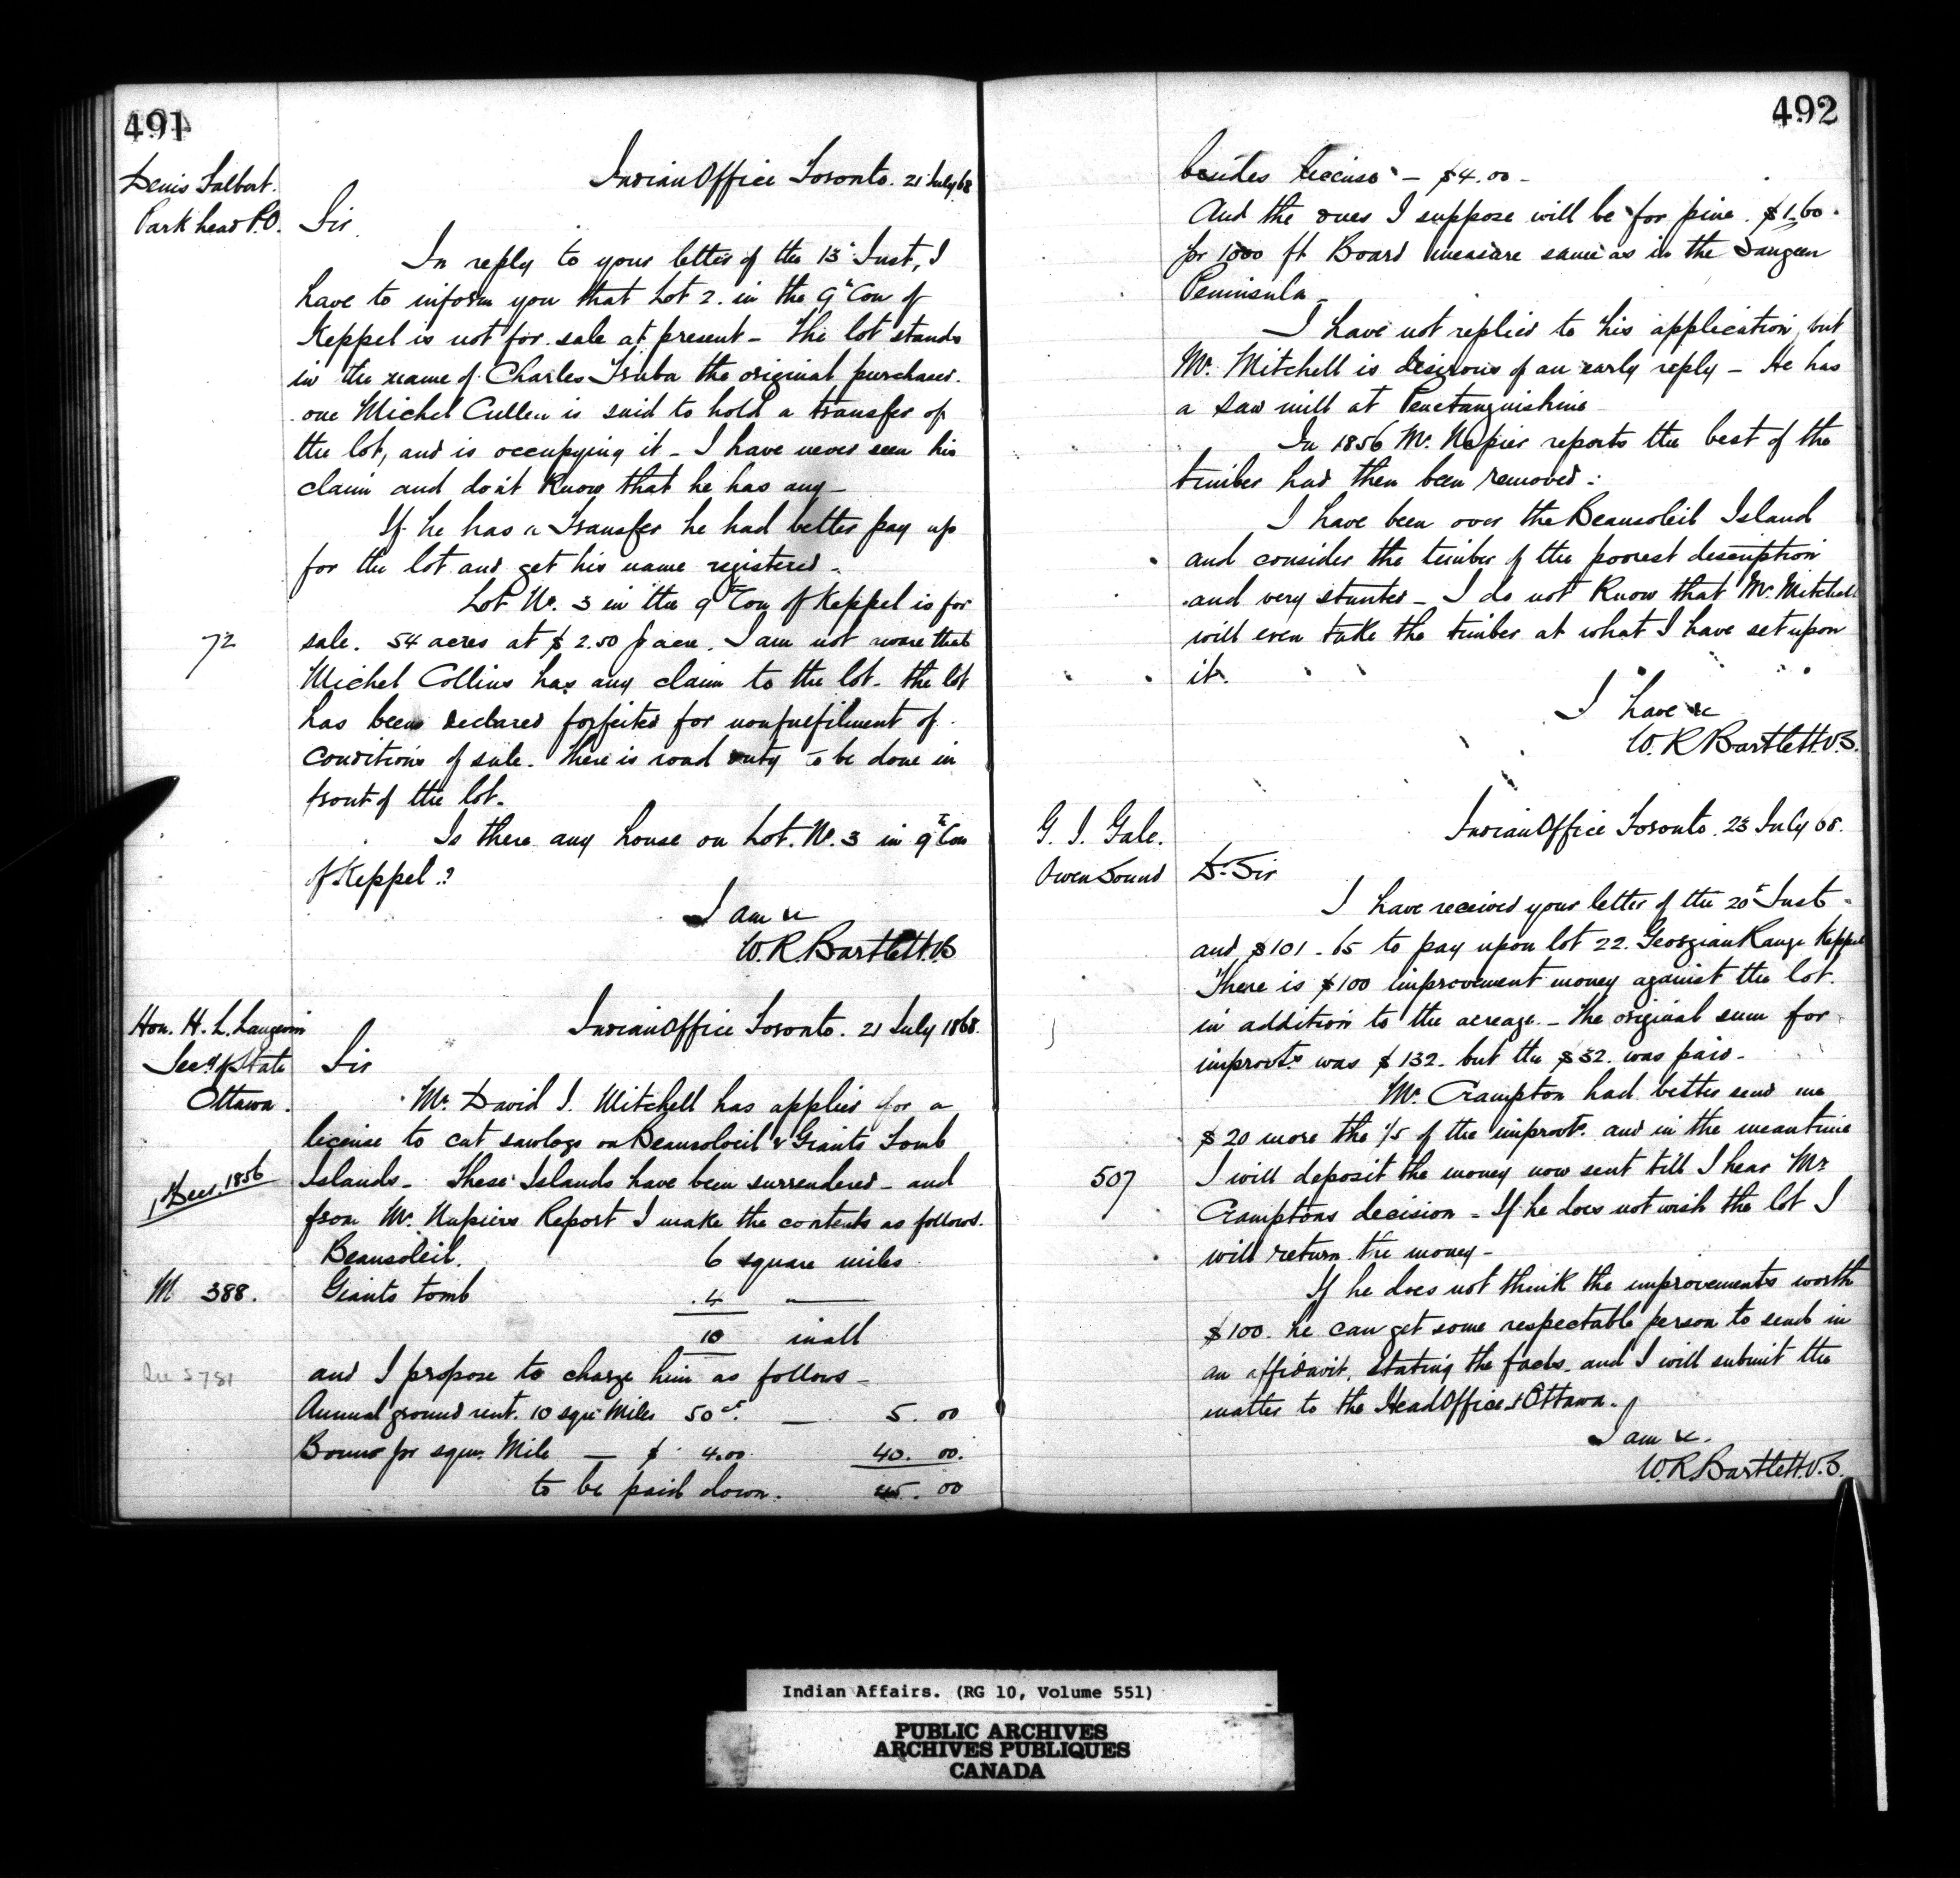 491
Denis Talbot.
Park head P.O.
Indian Office Toronto. 21 July 68
Sir
In reply to your letter of the 13th Inst, I
have to inform you that Lot 2. in the 9th Con of
Keppel is not for sale at present - The lot stands
in the name of Charles Truba the original purchaser.
one Michel Cullen is said to hold a transfer of
the lot, and is occupying it - I have never seen his
claim and don't Know that he has any -
If he has a Transfer he had better pay up
for the lot and get his name registered -
Lot No. 3 in the 9th Con of Keppel is for
72
sale. 54 acres at $2.50 p acre. I am not aware that
Michel Collins has any claim to the lot. the lot
has been declared forfeited for nonfulfilment of
conditions of sale. There is road duty to be done in
front of the lot.
Is there any house on Lot. No. 3 in 9th Con
of Keppel ?
I am &c
W. R. Bartlett. V.S
Hon. H. L. Langevin
Secy of State
Ottawa.
Indian Office Toronto. 21 July 1868.
Sir
Mr. David I. Mitchell has applied for a
license to cut sawlogs on Beausoleil & Giants Tomb
1 Decr. 1856
Islands - These Islands have been surrendered - and
from Mr. Napiers Report I make the contents as follows.
Beausoleil. 6 square miles
M 388.
Giants tomb 4 —
10 in all
5781
and I propose to charge him as follows -
Annual ground rent. 10 sqr Miles 50 cts. — 5. 00
Bonus pr sqr. Mile — $ 4.00 40. 00.
to be paid down. 45. 00
492
besides license - $4.00 -
And the dues I suppose will be for pine. $1.60.
pr 1000 ft Board measure same as in the Saugeen
Peninsula -
I have not replied to his application, but
Mr. Mitchell is desirous of an early reply - He has
a Saw mill at Penetanguishine
In 1856 Mr. Napier reports the best of the
timber had then been removed.
I have been over the Beausoleil Island
and consider the timber of the poorest description
and very stunted - I do not Know that Mr. Mitchell
will even take the timber at what I have set upon
it.
I have &c
W. R Bartlett V.S.
G. I. Gale.
Owen Sound
Indian Office Toronto. 23 July 68.
Dr. Sir
I have received your letter of the 20th Inst -
and $101.65 to pay upon lot 22. Georgian Range Keppel
There is $100 improvement money against the lot.
in addition to the acreage. - The original sum for
improvts was $132. but the $32. was paid -
Mr. Crampton had better send me
$20 more the 1/5 of the improvts. and in the meantime
507
I will deposit the money now sent till I hear Mr
Cramptons decision - If he does not wish the lot I
will return the money -
If he does not think the improvements worth
$100. he can get some respectable person to send in
an affidavit, stating the facts. and I will submit the
matter to the Head Office Ottawa.
I am &c.
W. R Bartlett. V.S.
Indian Affairs. (RG 10, Volume 551)
PUBLIC ARCHIVES
ARCHIVES PUBLIQUES
CANADA